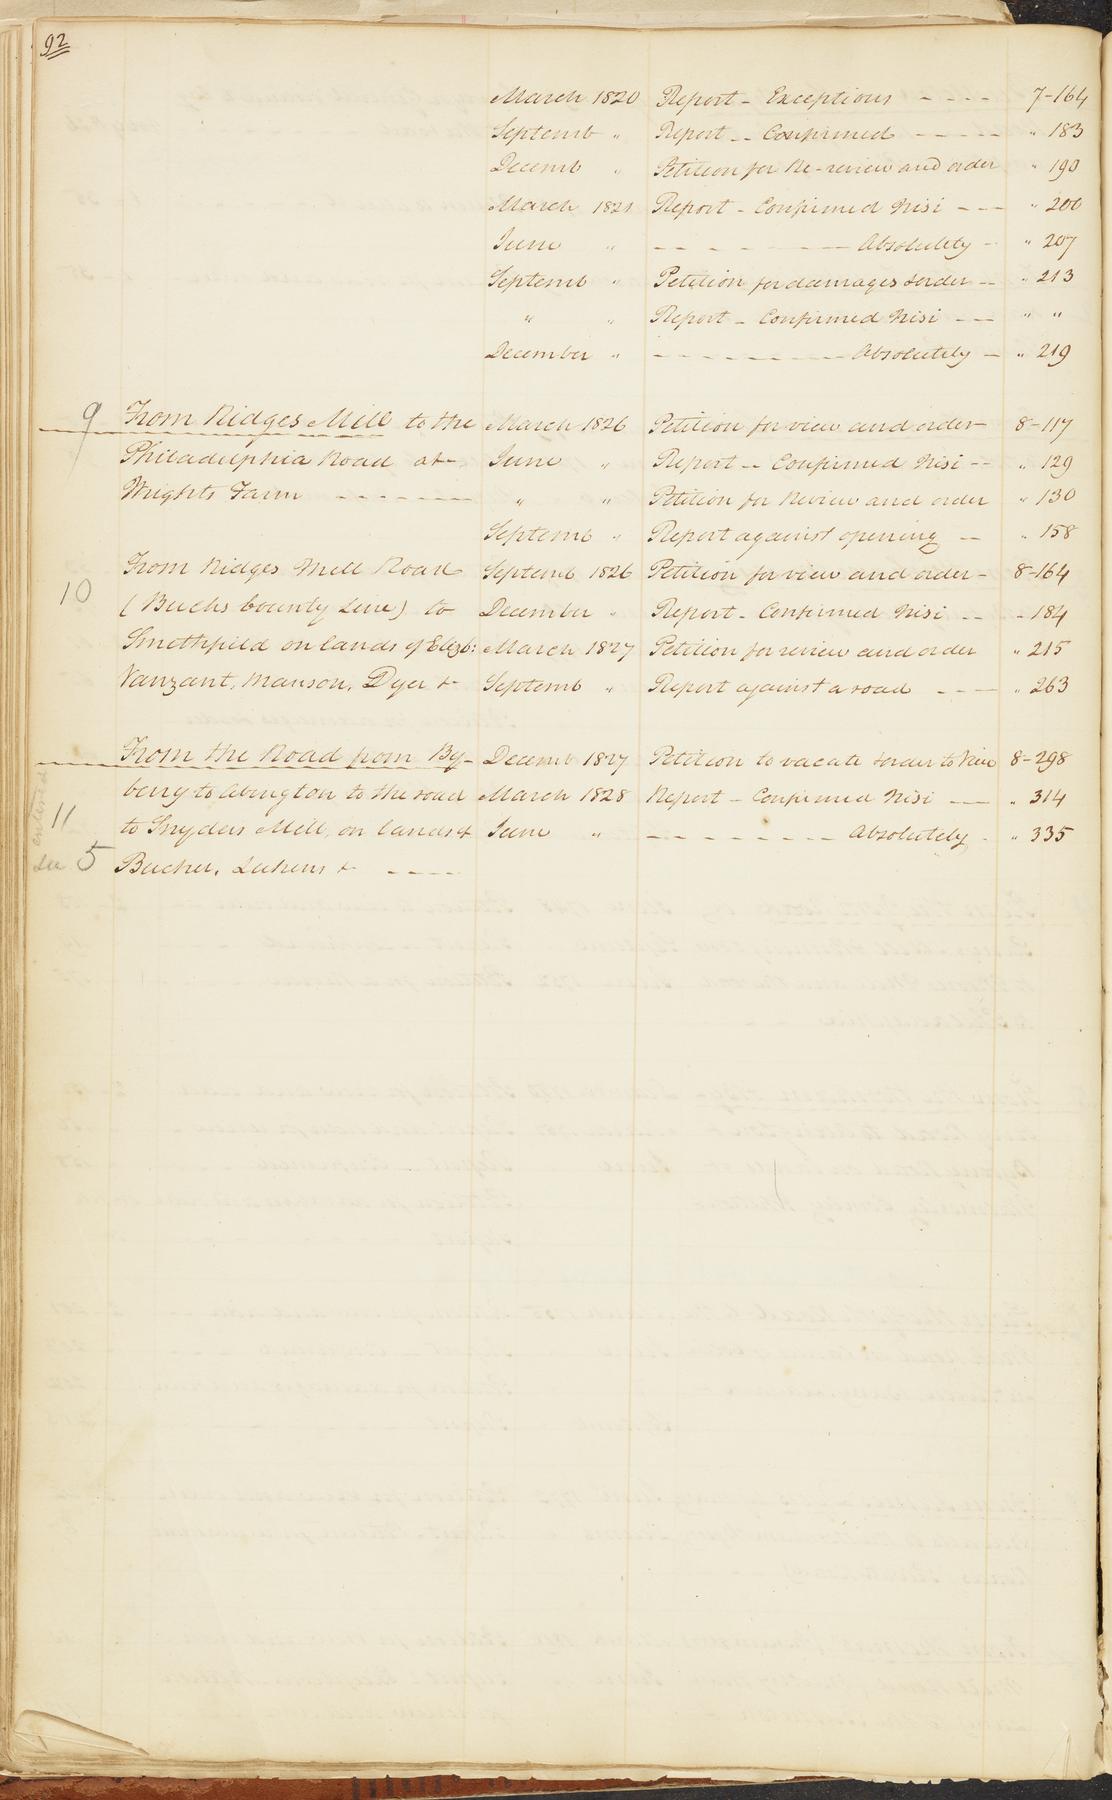 92
March 1820 Report - Exceptions - - - - 7-164
Septemb " Report -- Confirmed - - - - - " 183
Decemb " Petition for Re-review and order " 190
March 1821 Report - Confirmed Nisi - - - " 200
June " - - - - - - - - Absolutely - " 207
Septemb " Petition for damages & order -- " 213
" " Report - Confirmed Nisi - - - " "
December " - - - - - - - - Absolutely - " 219
9 From Ridges Mill to the March 1826 Petition for view and order - 8-117
Philadelphia Road at - June " Report -- Confirmed Nisi -- " 129
Wrights Farm - - - - - - - " " Petition for Review and order " 130
Septemb " Report against opening -- " 158
From Ridges Mill Road Septemb 1826 Petition for view and order - 8-164
10 (Bucks County Line) to December " Report - Confirmed Nisi -- - 184
Smithfield on lands of Elizb: March 1827 Petition for review and order " 215
Vanzant, Manson, Dyer & Septemb " Report against a road - - - " 263
From the Road from By- Decemb 1827 Petition to vacate & order to View 8-298
11 berry to Abington to the road March 1828 Report - Confirmed Nisi --- " 314
to Snyders Mill, on lands of June " - - - - - - - - Absolutely - " 335
entered
See 5 Bucher, Lukens & - - - -